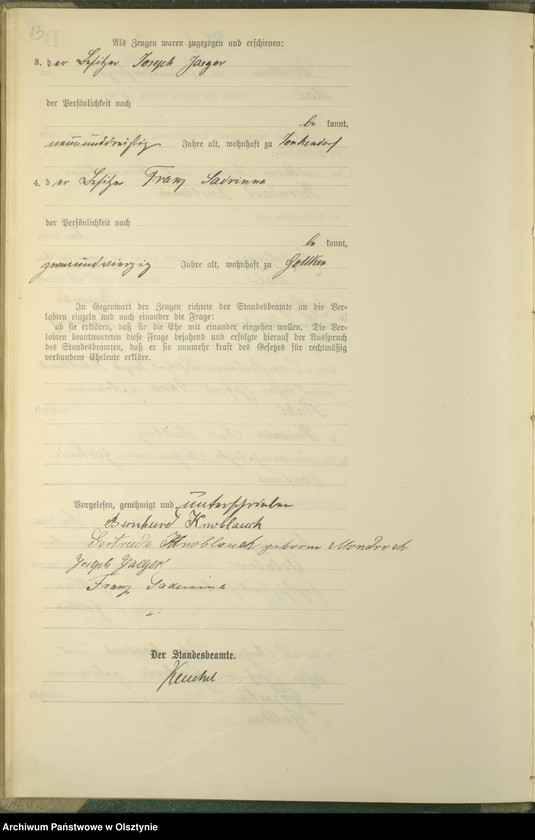 13
Als Zeugen waren zugezogen und erschienen:
3. der Besitzer Joseph Jaeger
der Persönlichkeit nach
be kannt,
neununddreißig Jahre alt, wohnhaft zu Jonkendorf
4. der Besitzer Franz Sadrinna
der Persönlichkeit nach
be kannt,
zweiundvierzig Jahre alt, wohnhaft zu Göttken
In Gegenwart der Zeugen richtete der Standesbeamte an die Ver-
lobten einzeln und nach einander die Frage:
ob sie erklären, daß sie die Ehe mit einander eingehen wollen. Die Ver-
lobten beantworteten diese Frage bejahend und erfolgte hierauf der Ausspruch
des Standesbeamten, daß er sie nunmehr kraft des Gesetzes für rechtmäßig
verbundene Eheleute erkläre.
Vorgelesen, genehmigt und unterschrieben
Bernhard Knoblauch
Gertrude Knoblauch geborne Mondroch
Joseph Jaeger
Franz Sadrinna
Der Standesbeamte.
Archiwum Państwowe w Olsztynie